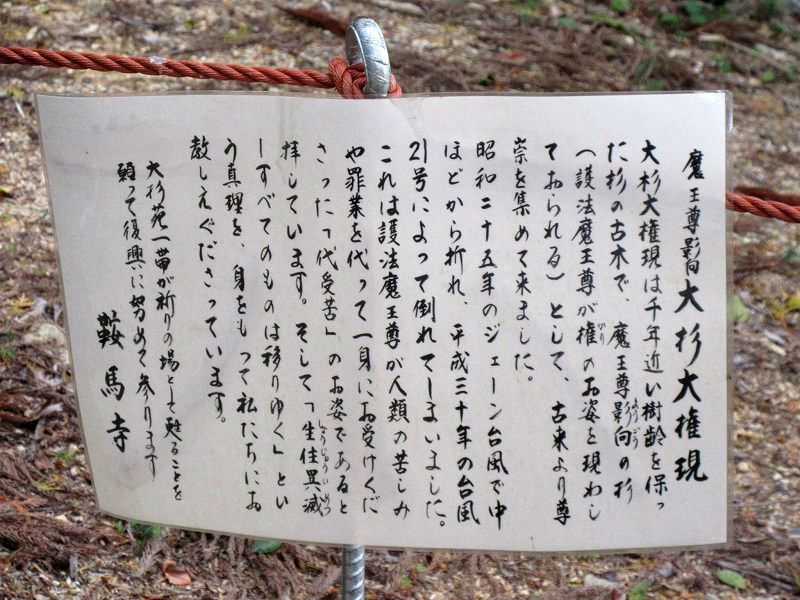 魔王尊影向 大杉大権現
大杉大権現は千年近い樹齢を保っ
た杉の古木で、魔王尊影向の杉
(護法魔王尊が権のお姿を現わし
ておられる)として、古来より尊
崇を集めて来ました。
昭和二十五年のジェーン台風で中
ほどから折れ、平成三十年の台風
21号によって倒れてしまいました。
これは護法魔王尊が人類の苦しみ
や罪業を代って一身にお受けくだ
さった「代受苦」のお姿であると
拝しています。そして「生住異滅
―すべてのものは移りゆく」とい
う真理を、身をもって私たちにお
教しえくださっています。
大杉苑一帯が祈りの場として甦ることを
願って復興に努めて参ります
鞍馬寺